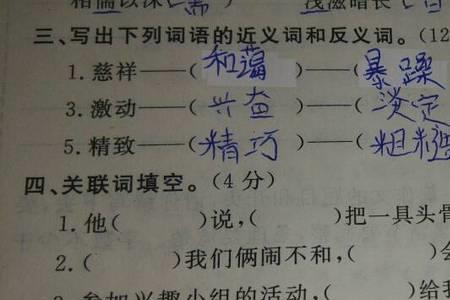 三、写出下列词语的近义词和反义词。(12
1.慈祥——(和蔼)——(暴躁
3.激动——(兴奋)——(淡定
5.精致——(精巧)——(粗糙
四、关联词填空。(4分)
1.他( )说,( )把一具头骨
2.( )我们俩闹不和,( )会
3.参加兴趣小组的活动,( )给我